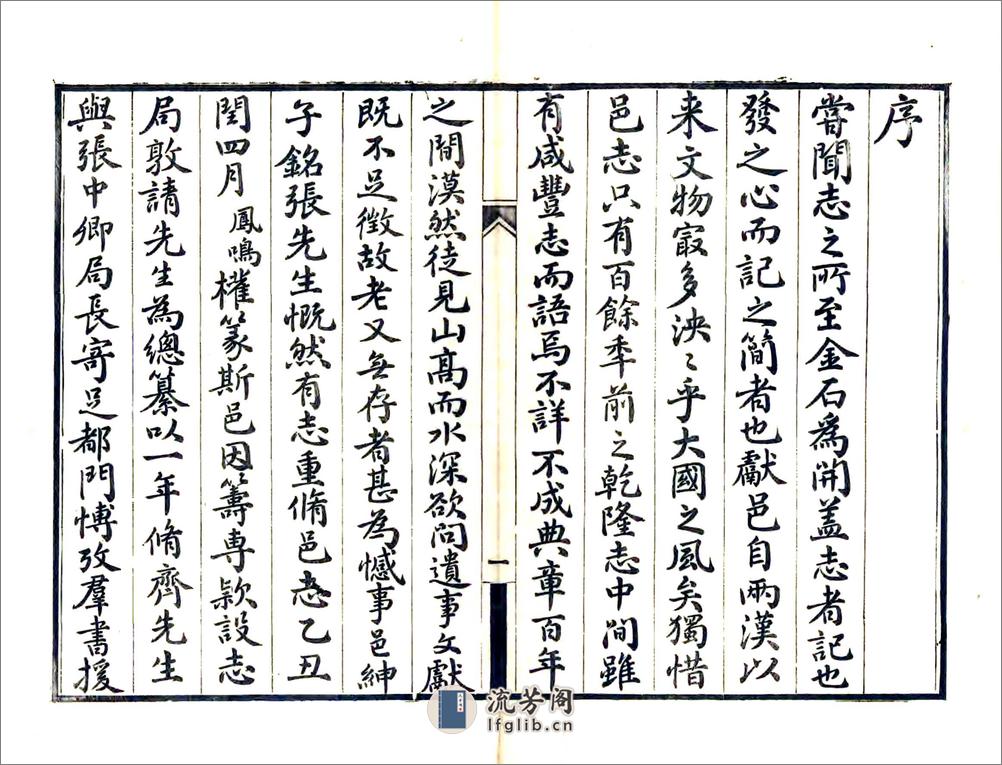 序
嘗聞志之所至金石爲開盖志者記也
發之心而記之簡者也獻邑自兩漢以
来文物冣多泱〻乎大國之風矣獨惜
邑志只有百餘秊前之乾隆志中间雖
有咸豐志而語焉不詳不成典章百年
之間漠然徒見山高而水深欲问遺事文獻
一
既不足徵故老又無存者甚為憾事邑紳
子銘張先生慨然有志重脩邑志乙丑
閏四月鳳鳴權篆斯邑因籌專款設志
局敦請先生為總纂以一年脩齊先生
與張中卿局長寄足都門博攷羣書援
流芳阁
lfglib.cn